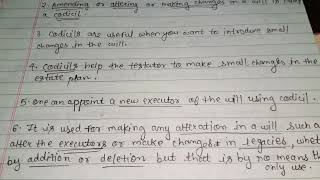 2. Amending or altering or making changes in a will is
a codicil.
3. Codicils are useful when you want to introduce small
changes in the will.
4. Codicils help the testator to make small changes in the
estate plan.
5. One can appoint a new executor of the will using codicil.
6. It is used for making any alteration in a will such a
alter the executors or make changes in legacies, whet
by addition or deletion but that is by no means th
only use.